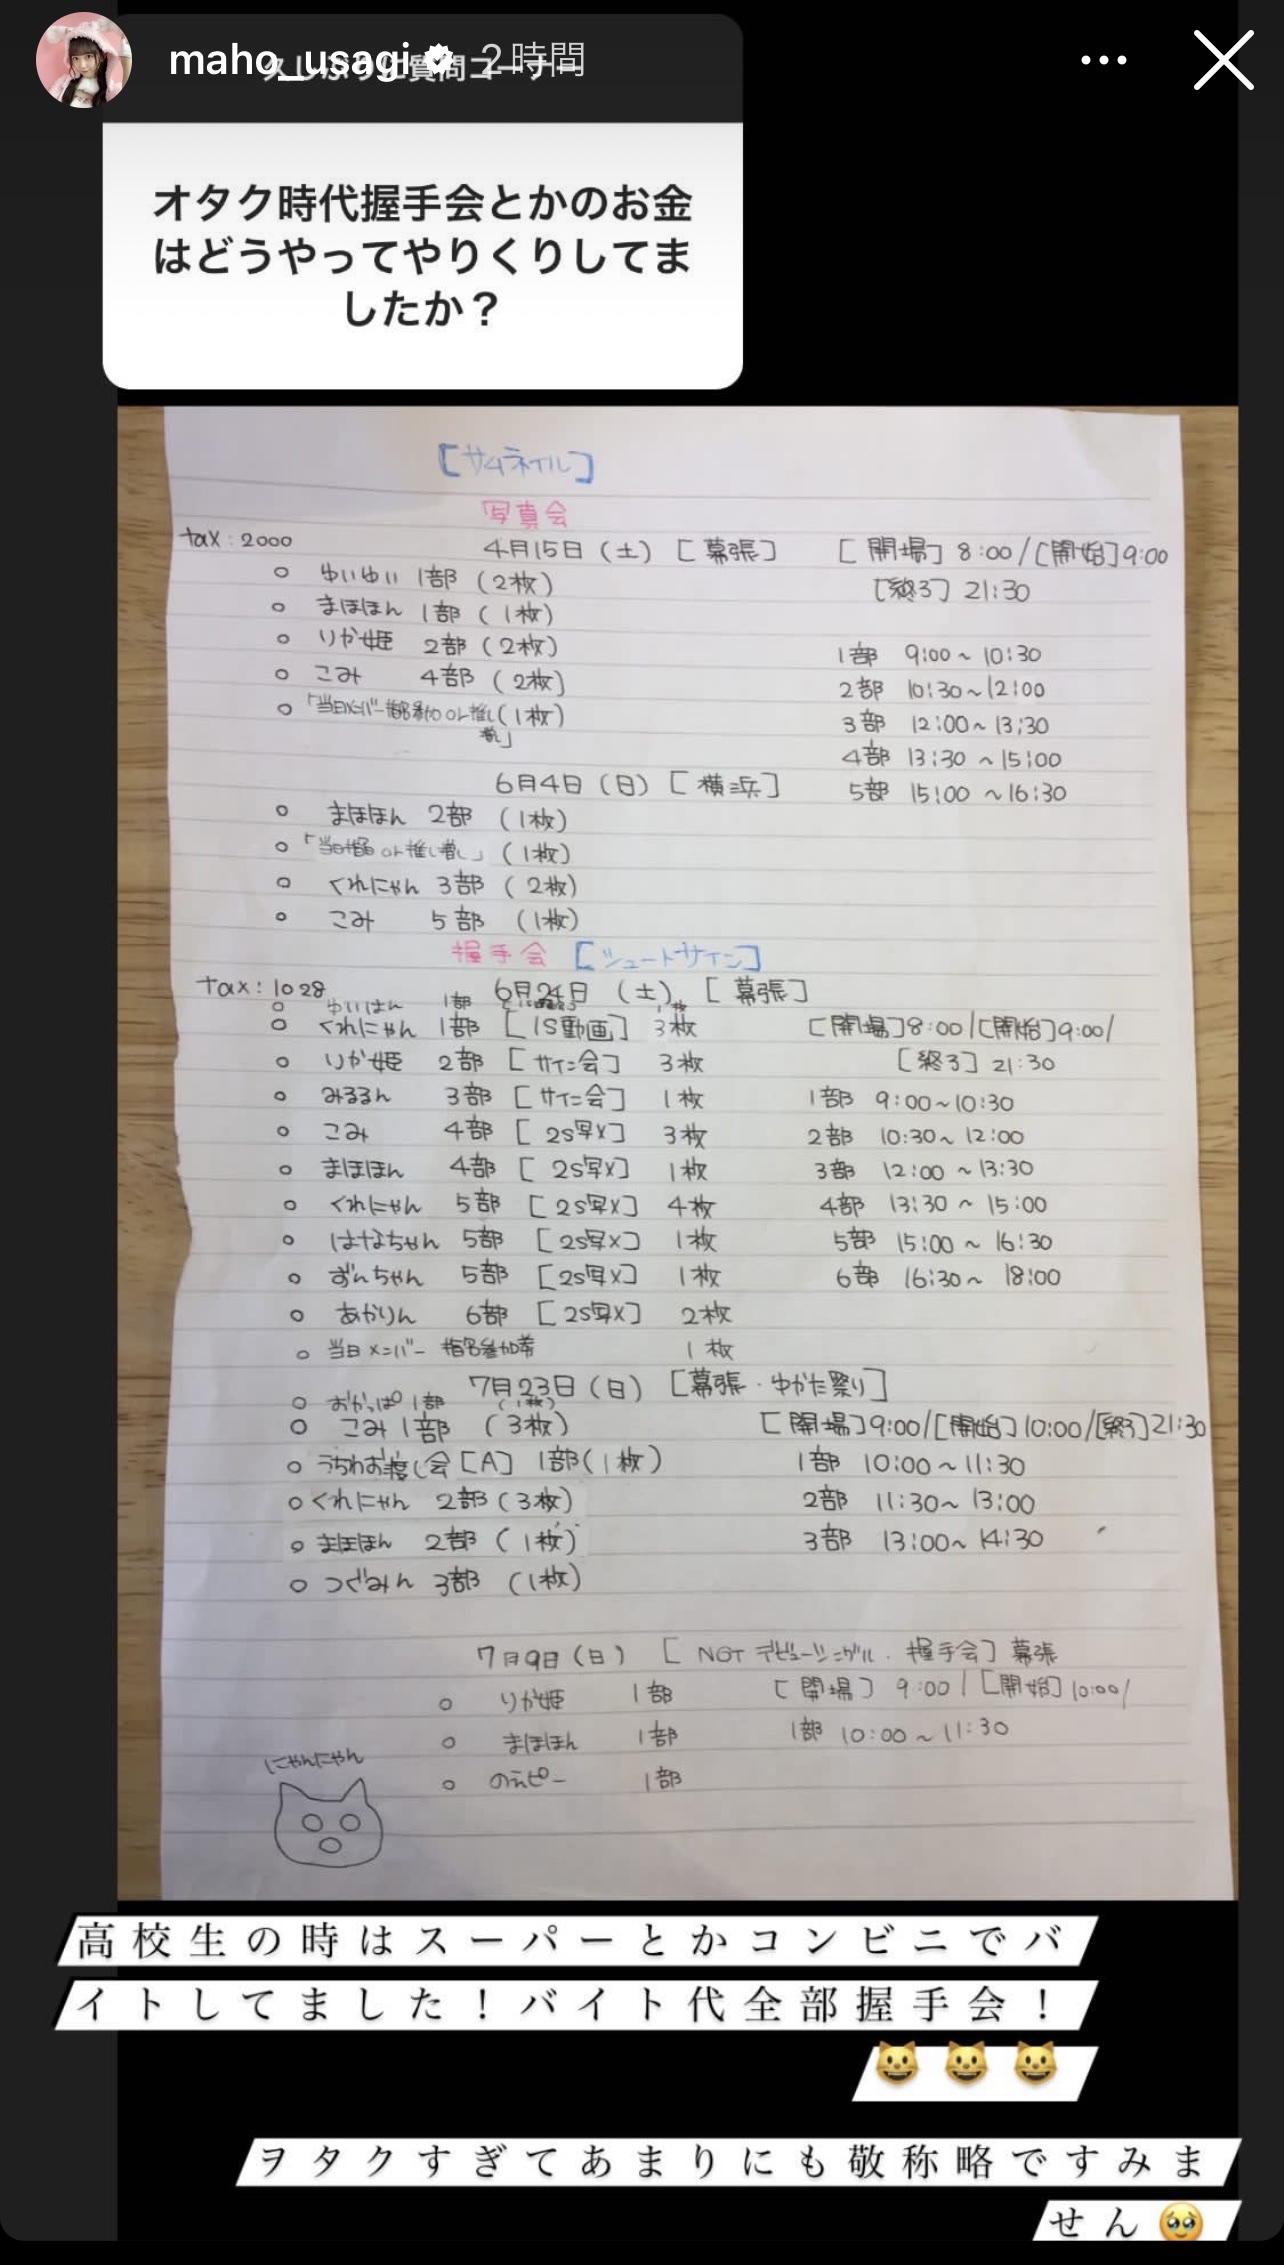 maho_usagi 2時間
久しぶりに質問コーナー
オタク時代握手会とかのお金
はどうやってやりくりしてま
したか？
[サムネイル]
写真会
tax:2000
4月15日(土) [幕張] [開場] 8:00/[開始]9:00
[終了] 21:30
○ ゆいゆい 1部 (2枚)
○ まほほん 1部 (1枚)
○ りか姫 2部 (2枚)
○ こみ 4部 (2枚)
○ 「当日メンバー指名参加 or 推し(1枚)
増し」
1部 9:00~10:30
2部 10:30~12:00
3部 12:00~13:30
4部 13:30~15:00
5部 15:00~16:30
6月4日(日) [横浜]
○ まほほん 2部 (1枚)
○ 「当日指名 or 推し増し」 (1枚)
○ くれにゃん 3部 (2枚)
○ こみ 5部 (1枚)
握手会 [シュートサイン]
tax:1028
6月24日 (土) [幕張]
○ ゆいはん 1部 1枚
○ くれにゃん 1部 [15動画] 3枚
○ りか姫 2部 [サイン会] 3枚
○ みるるん 3部 [サイン会] 1枚
○ こみ 4部 [2S写メ] 3枚
○ まほほん 4部 [2S写メ] 1枚
○ くれにゃん 5部 [2S写メ] 4枚
○ はなちゃん 5部 [2S写メ] 1枚
○ ずんちゃん 5部 [2S写メ] 1枚
○ あかりん 6部 [2S写メ] 2枚
○ 当日メンバー 指名参加等 1枚
[開場]8:00/[開始]9:00/
[終了] 21:30
1部 9:00~10:30
2部 10:30~12:00
3部 12:00~13:30
4部 13:30~15:00
5部 15:00~16:30
6部 16:30~18:00
7月23日(日) [幕張・ゆかた祭り]
○ おかっぱ 1部 (1枚)
○ こみ 1部 (3枚)
○ うちわお渡し会[A] 1部(1枚)
○ くれにゃん 2部(3枚)
○ まほほん 2部 (1枚)
○ つぐみん 3部 (1枚)
[開場]9:00/[開始]10:00/[終了]21:30
1部 10:00~11:30
2部 11:30~13:00
3部 13:00~14:30
7月9日(日) [NGT デビューシングル・握手会] 幕張
○ りか姫 1部
○ まほほん 1部
○ のえピー 1部
[開場] 9:00/[開始]10:00/
1部 10:00~11:30
にゃんにゃん
高校生の時はスーパーとかコンビニでバ
イトしてました！バイト代全部握手会！
😺😺😺
ヲタクすぎてあまりにも敬称略ですみま
せん🥹